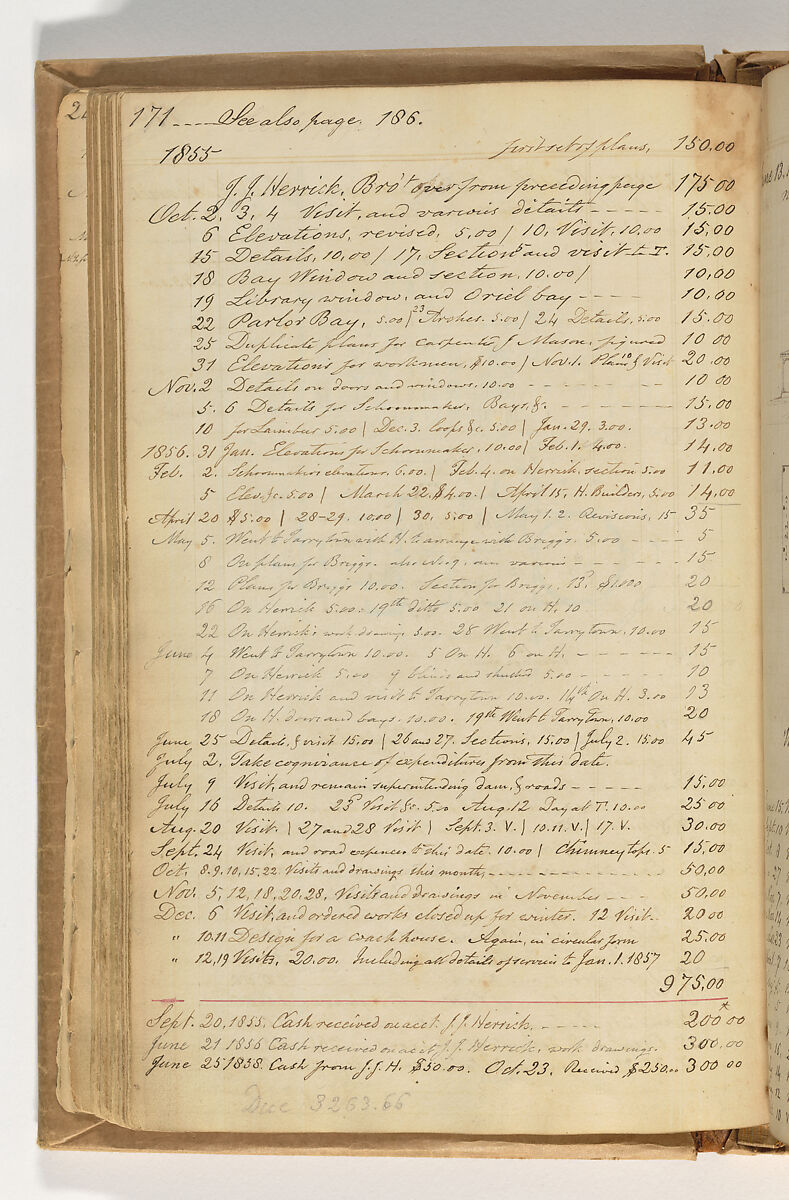 171 ---- See also page. 186.
1855 first set of plans, 150.00
J. J. Herrick, Bro't over from preceding page 175 00
Oct. 2, 3, 4 Visit, and various details - - - - 15.00
6 Elevations, revised, 5.00 / 10, Visit, 10.00 15.00
15 Details, 10.00 / 17, Sections and visit to T. 15,00
18 Bay Window and section, 10.00 / 10,00
19 Library window, and Oriel bay - - - - 10.00
22 Parlor Bay, 5.00 / 23 Arches. 5.00 / 24 Details, 5.00 15.00
25 Duplicate plans for carpenter & Mason, figured 10 00
31 Elevations for workmen, $10.00 / Nov. 1. Plans & Visit 10 20.00
Nov. 2 Details on doors and windows. 10.00 - - - - - - - - 10 00
5. 6 Details for Schoonmaker, Bays, &c. - - - - - - - - 15.00
10 for 5.00 / Dec. 3. Coops &c. 5.00 / Jan. 29. 3.00. 13.00
1856. 31 Jan. Elevations for Schoonmaker, 10.00 / Feb. 1. 4.00. 14,00
Feb. 2. Schoonmaker's elevations, 6.00. / Feb. 4. on Herrick, section 5.00 11.00
5 Elev. &c. 5.00 / March 22, $4.00. / April 15, H. Builders, 5.00 14,00
April 20 $5.00 / 28-29. 10.00 / 30, 5.00 / May 1. 2. Revisions, 15 35
May 5. Went to Tarrytown with H. to arrange with Briggs. 5.00 - - - - 5
8 On plans for Briggs. also various - - - - - - 15
12 Plans for Briggs 10.00. Section for Briggs. 13. $10.00 20
16 On Herrick 5.00. 19th ditto 5.00 21 on H. 10 20
22 On Herrick's work drawings 5.00. 28 Went to Tarrytown, 10.00 15
June 4 Went to Tarrytown 10.00. 5 On H. 6 on H. - - - - - - 15
7 On Herrick 5.00 9 and 5.00 - - - - - - 10
11 On Herrick and visit to Tarrytown 10.00. 14th On H. 3.00 13
18 On H. doors and bays. 10.00. 19th Went to Tarrytown, 10.00 20
June 25 Details, & visit 15.00 / 26 and 27. Sections, 15.00 / July 2. 15.00 45
July 2. Take cognizance of expenditures from this date.
July 9 Visit, and remain superintending dam, & roads - - - - - 15,00
July 16 Details 10. 23d Visit &c. 5.00 Aug. 12 Day at T. 10.00 25 00
Aug. 20 Visit. / 27 and 28 Visit / Sept. 3. V. / 10. 11. V. / 17. V. 30.00
Sept. 24 Visit, and road expences to this date. 10.00 / Chimney tops. 5 15,00
Oct. 8. 9. 10, 15, 22. Visits and drawings this month, - - - - - - - - 50,00
Nov. 5, 12, 18, 20, 28, Visits and drawings in November - - 50.00
Dec. 6 Visit, and ordered works closed up for winter. 12 Visit - 20 00
" 10. 11 Design for a coach house. Again, in circular form 25.00
" 12, 19 Visits, 20.00. Including all details of services to Jan. 1. 1857 20
975,00
Sept. 20, 1855. Cash received on acct. J. J. Herrick, - - - - 200 00
June 21 1856 Cash received on acct J. J. Herrick, work drawings. 300.00
June 25 1858. Cash from J. J. H. $50.00. Oct. 23, Received $250.00 300 00
Due 3263.66